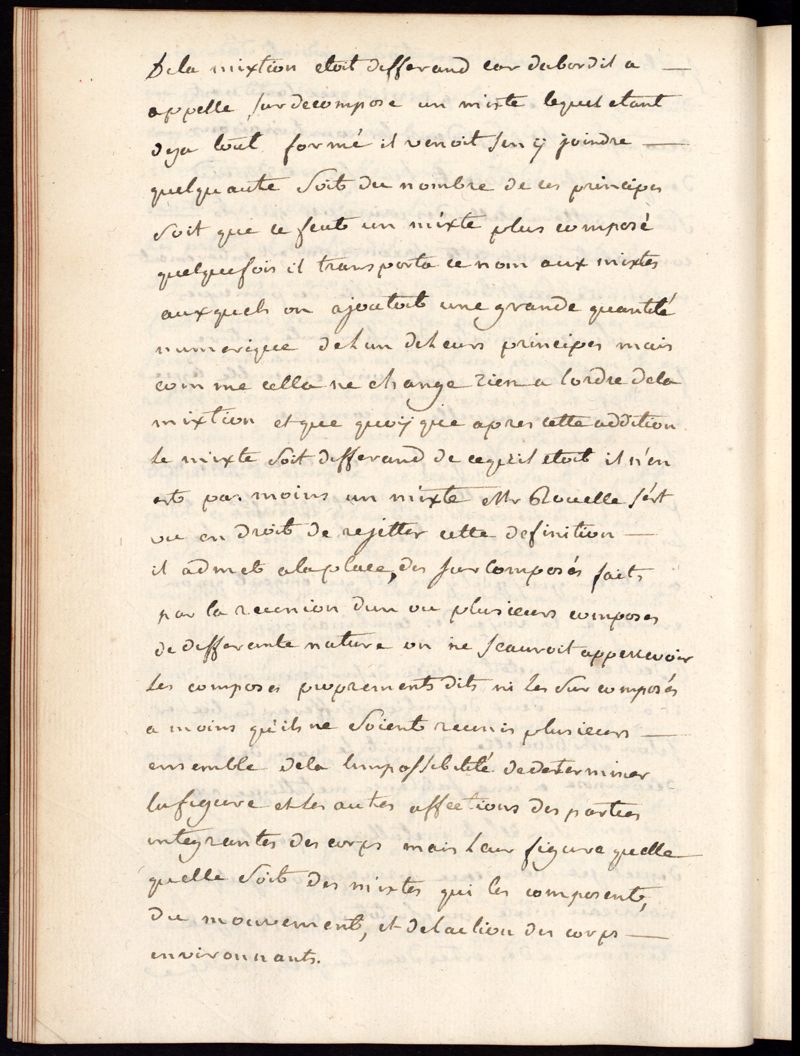 Dela mixtion etoit differand car dabord il a —
appelle surdecompose un mixte lequel etant
deja tout formé il venoit s'en ÿ joindre —
quelqu'aute soit du nombre de ces principes
soit que ce feut un mixte plus composé
quelquefois il transporta ce nom aux mixtes
auxquels on ajoutoit une grande quantité
numerique de lun de leurs principes mais
comme cella ne change rien a lordre dela
mixtion et que quoÿque apres cette addition
le mixte soit differand de cequil etoit il n'en
est pas moins un mixte Mr Rouelle s'est
vu en droit de rejetter cette definition —
il admet alaplace, des surcomposés faits
par la reunion dun ou plusieurs composes
de differante nature on ne scauroit appercevoir
les composes proprements dits ni les surcomposés
a moins qu'ils ne soient reunis plusieurs —
ensemble dela limpossibilité de determiner
la figure et les autes affections des parties
integrantes des corps mais leur figure quelle
quelle soit des mixtes qui les composent,
du mouvement, et delaction des corps —
environnants.